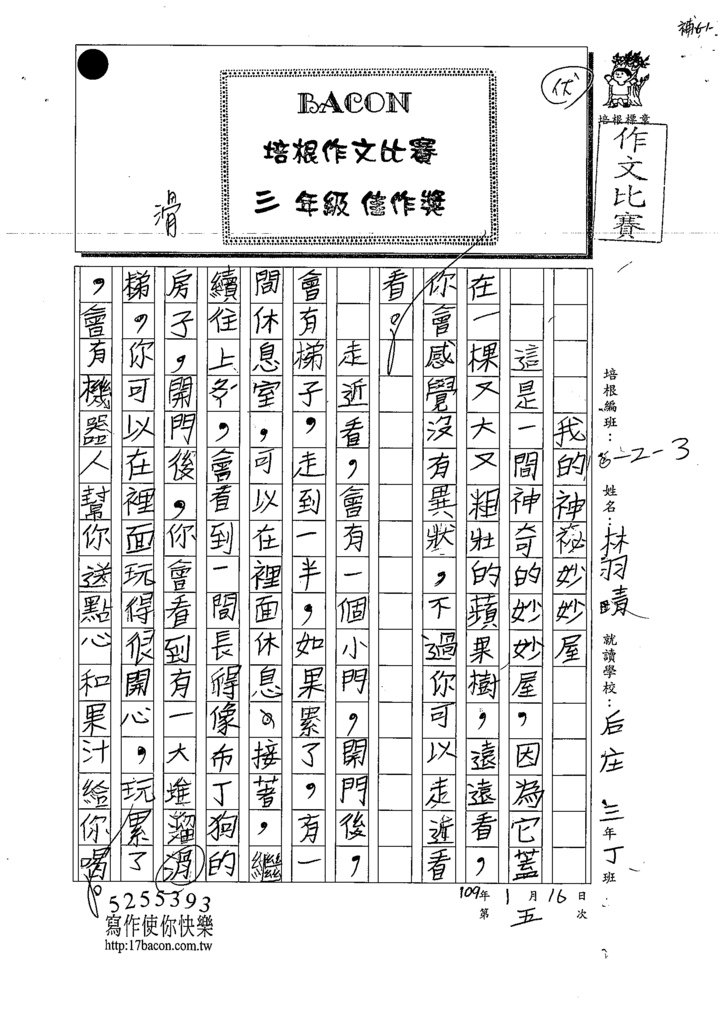 補6-1
優
培根標章
作文比賽
BACON
培根作文比賽
三年級佳作獎
滑
培根編班：
-2-3
姓名：林羽晴
就讀學校：后庄三年丁班
109年1月16日
第五次
我的神祕妙妙屋
這是一間神奇的妙妙屋，因為它蓋
在一棵又大又粗壯的蘋果樹，遠遠看，
你會感覺沒有異狀，不過你可以走近看
看。
走近看，會有一個小門，開門後，
會有梯子，走到一半，如果累了，有一
間休息室，可以在裡面休息。接著，繼
續住上爬，會看到一間長得像布丁狗的
房子，開門後，你會看到有一大堆遛滑
梯，你可以在裡面玩得很開心，玩累了
，會有機器人幫你送點心和果汁給你喝。
5255393
寫作使你快樂
http:17bacon.com.tw